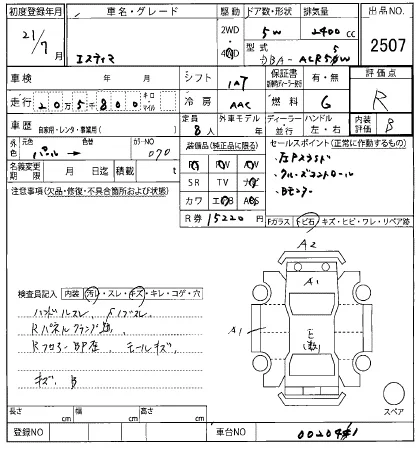 初度登録年月 車名・グレード 駆動 ドア数・形状 排気量 出品NO.
21/7月 エスティマ 2WD 4WD 5W 2400cc 2507
型式 DBA-ACR55W
車検 年 月 シフト IAT 保証書 有・無 評価点
走行 20万5千800 キロ マイル 冷房 AAC 燃料 G R
車歴 自家用・レンタ・事業用( ) 定員 8人 外車モデル 年 ディーラー 並行 ハンドル 左・右 内装 B
外色 元色 パール → 色替 カラーNO 070
装備品(純正品に限る) セールスポイント(正常に作動するもの)
名義変更期限 月 日迄 積載 t
PS AW PW
左Pスライド
注意事項(欠品・修復・不具合箇所および状態)
SR TV ナビ
クルーズコントロール
カワ エアB ABS
Bモニター
R券 15220円
Fガラス ヒビ石・キズ・ヒビ・ワレ・リペア跡
A2
検査員記入 内装 汚レ・スレ・キズ・キレ・コゲ・穴
A1
ハンドルスレ
A1
E
(数)
モールキズ
キズ B
スペア
長さ cm 幅 cm 高さ cm
登録NO 車台NO